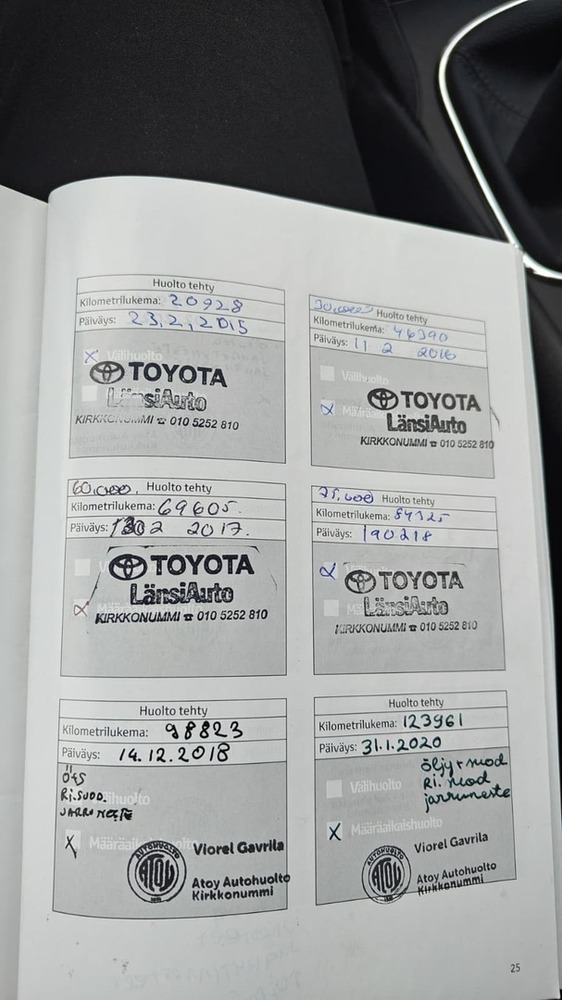 Huolto tehty
Kilometrilukema: 20928
Päiväys: 23,2,2015
X Välihuolto
TOYOTA
LänsiAuto
KIRKKONUMMI ☎ 010 5252 810
30,000 Huolto tehty
Kilometrilukema: 46390
Päiväys: 11 2 2016
Välihuolto
X
TOYOTA
LänsiAuto
KIRKKONUMMI ☎ 010 5252 810
60,000, Huolto tehty
Kilometrilukema: 69605.
Päiväys: 2 2017.
TOYOTA
X
LänsiAuto
KIRKKONUMMI ☎ 010 5252 810
75,000 Huolto tehty
Kilometrilukema: 84325
Päiväys: 190218
X
TOYOTA
LänsiAuto
KIRKKONUMMI ☎ 010 5252 810
Huolto tehty
Kilometrilukema: 98823
Päiväys: 14.12.2018
ÖTS
RI.SUOD.
JARRUNESTE
X Määräaikaishuolto
Viorel Gavrila
AUTOHUOLTO
ATOY
Atoy Autohuolto
Kirkkonummi
Huolto tehty
Kilometrilukema: 123961
Päiväys: 31.1.2020
öljy+suod
Ri. suod
jarruneste
Välihuolto
X Määräaikaishuolto
Viorel Gavrila
AUTOHUOLTO
ATOY
Atoy Autohuolto
Kirkkonummi
25